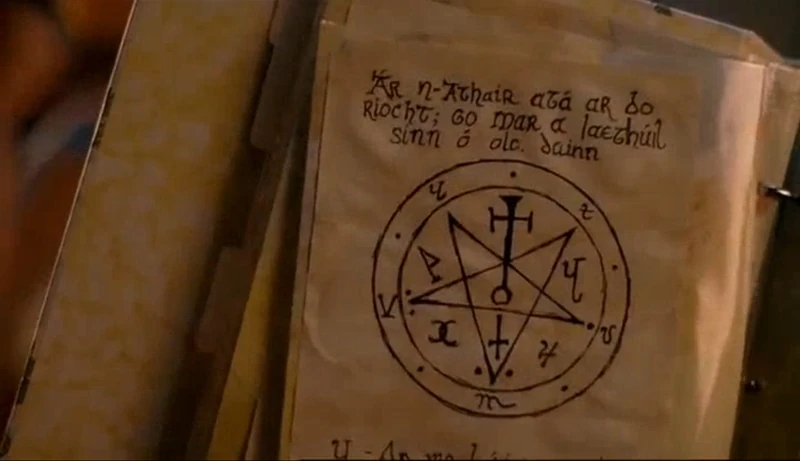 Ár n-Athair atá ar do
ríocht; go mar a laethúil
sinn ó olc. dainn